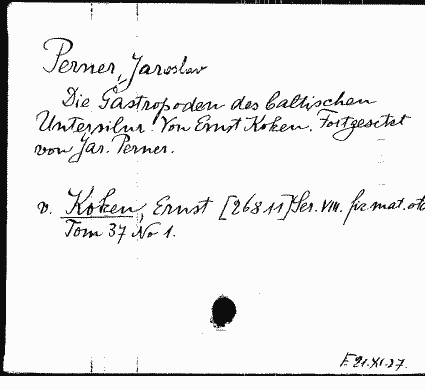 Perner, Jaroslav
Die Gastropoden des baltischen
Untersilur. Von Ernst Koken. Fortgesetzt
von Jar. Perner.
v. Koken, Ernst [26811] Ser. VIII. fiz. mat. otd.
Tom 37 No 1.
F. 21.XI.27.